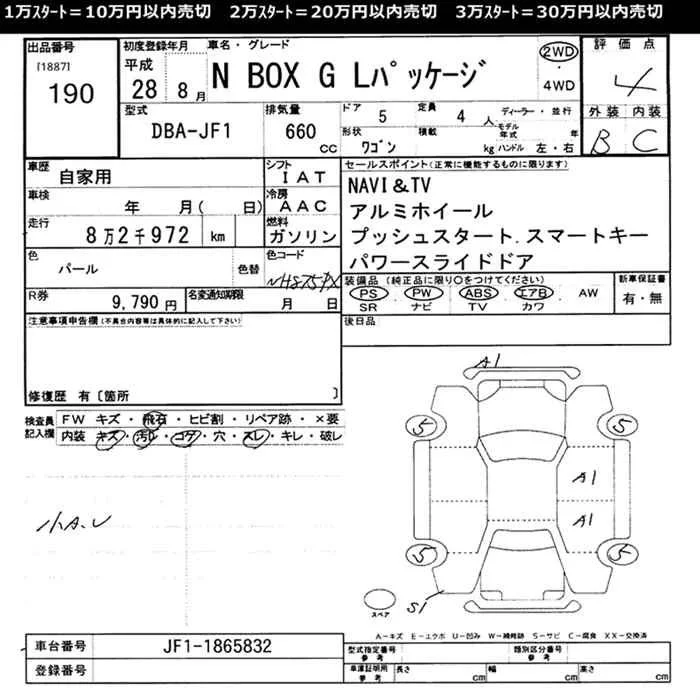 1万ｽﾀｰﾄ＝10万円以内売切　2万ｽﾀｰﾄ＝20万円以内売切　3万ｽﾀｰﾄ＝30万円以内売切
出品番号 初度登録年月 車名・グレード 評価点
[1887] 平成 2WD
190 28 8月 N BOX G Lﾊﾟｯｹｰｼﾞ ・ 4
4WD
型式 排気量 ドア 5 定員 4人 ディーラー・並行 外装 内装
DBA-JF1 660cc 形状 ﾜｺﾞﾝ 積載 kg モデル年式 年 ハンドル 左・右 B C
車歴 自家用 シフト IAT セールスポイント(正常に機能するものに限ります)
車検 年 月( 日) 冷房 AAC NAVI＆TV
走行 8万2千972 km 燃料 ガソリン アルミホイール
プッシュスタート．スマートキー
パワースライドドア
色 パール 色替 色コード NH875PX
装備品(純正品に限り〇をつけてください) 新車保証書
PS・PW・ABS・エアB・AW 有・無
SR ナビ TV カワ
R券 9,790円 名変通知期限 月 日
後日品
注意事項申告欄(不具合内容等は具体的に記入して下さい)
修復歴 有〔箇所 〕
検査員記入欄 FW キズ・飛石・ヒビ割・リペア跡・×要
内装 キズ・汚レ・コゲ・穴・スレ・キレ・破レ
小A.U
A1
5 5
A1
A1
5 5
S1
スペア
A－キズ E－エクボ U－凹み W－補修跡 S－サビ C－腐食 XX－交換済
車台番号 JF1-1865832 型式指定番号 参考 類別区分番号 参考
登録番号 車庫証明用参考 長さ cm 幅 cm 高さ cm